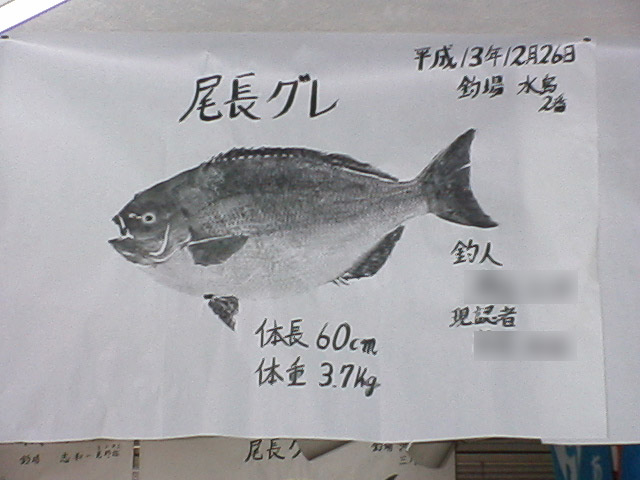 平成13年12月26日
釣場 水島
2番
尾長グレ
釣人
現認者
体長 60cm
体重 3.7kg
釣場
尾長グ
釣場